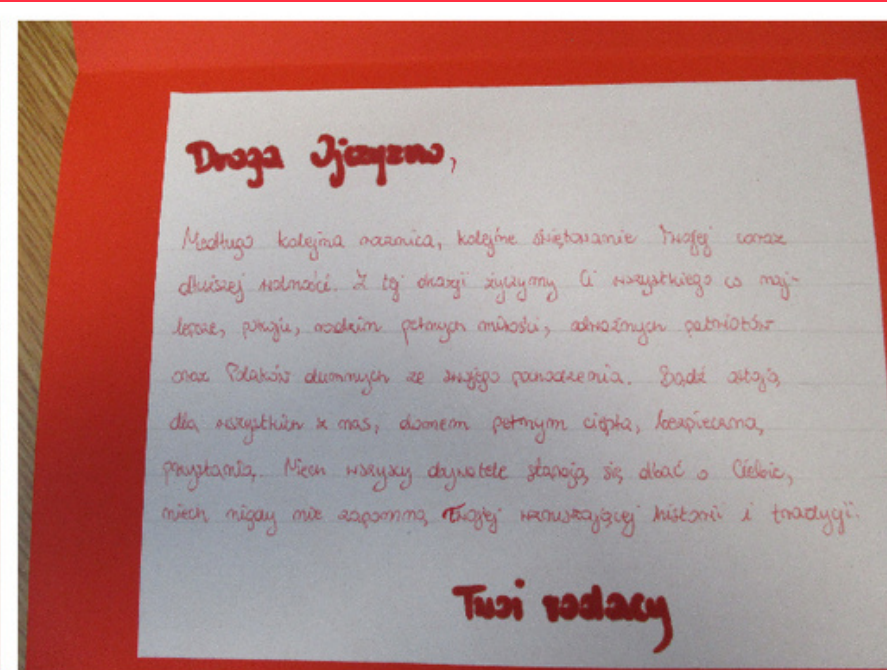 Droga Ojczyzno,
Niedługo kolejna rocznica, kolejne świętowanie Twojej coraz
dłuższej wolności. Z tej okazji życzymy Ci wszystkiego co naj-
lepsze, pokoju, rodzin pełnych miłości, odważnych patriotów
oraz Polaków dumnych ze swojego pochodzenia. Bądź ostoją
dla wszystkich z nas, domem pełnym ciepła, bezpieczną
przystanią. Niech wszyscy obywatele starają się dbać o Ciebie,
niech nigdy nie zapomną Twojej wzruszającej historii i tradycji.
Twoi rodacy